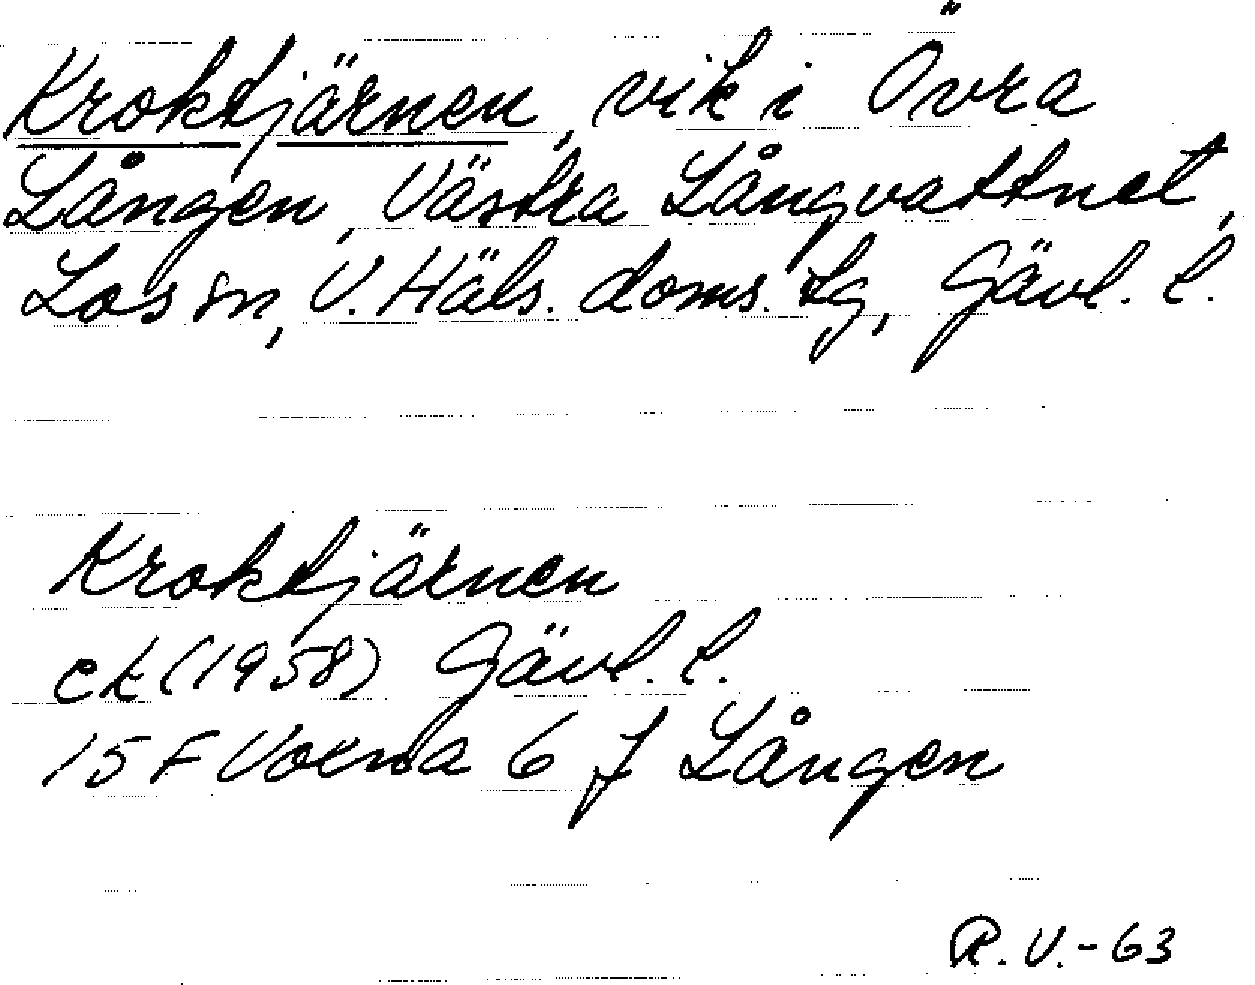 Kroktjärnen, vik i Övra
Lången, Västra Långvattnet,
Los sn, V. Häls. doms. tg, Gävl. l.
Kroktjärnen
ek (1958) Gävl. l.
15 F Voxna 6 f Lången
R.V.-63